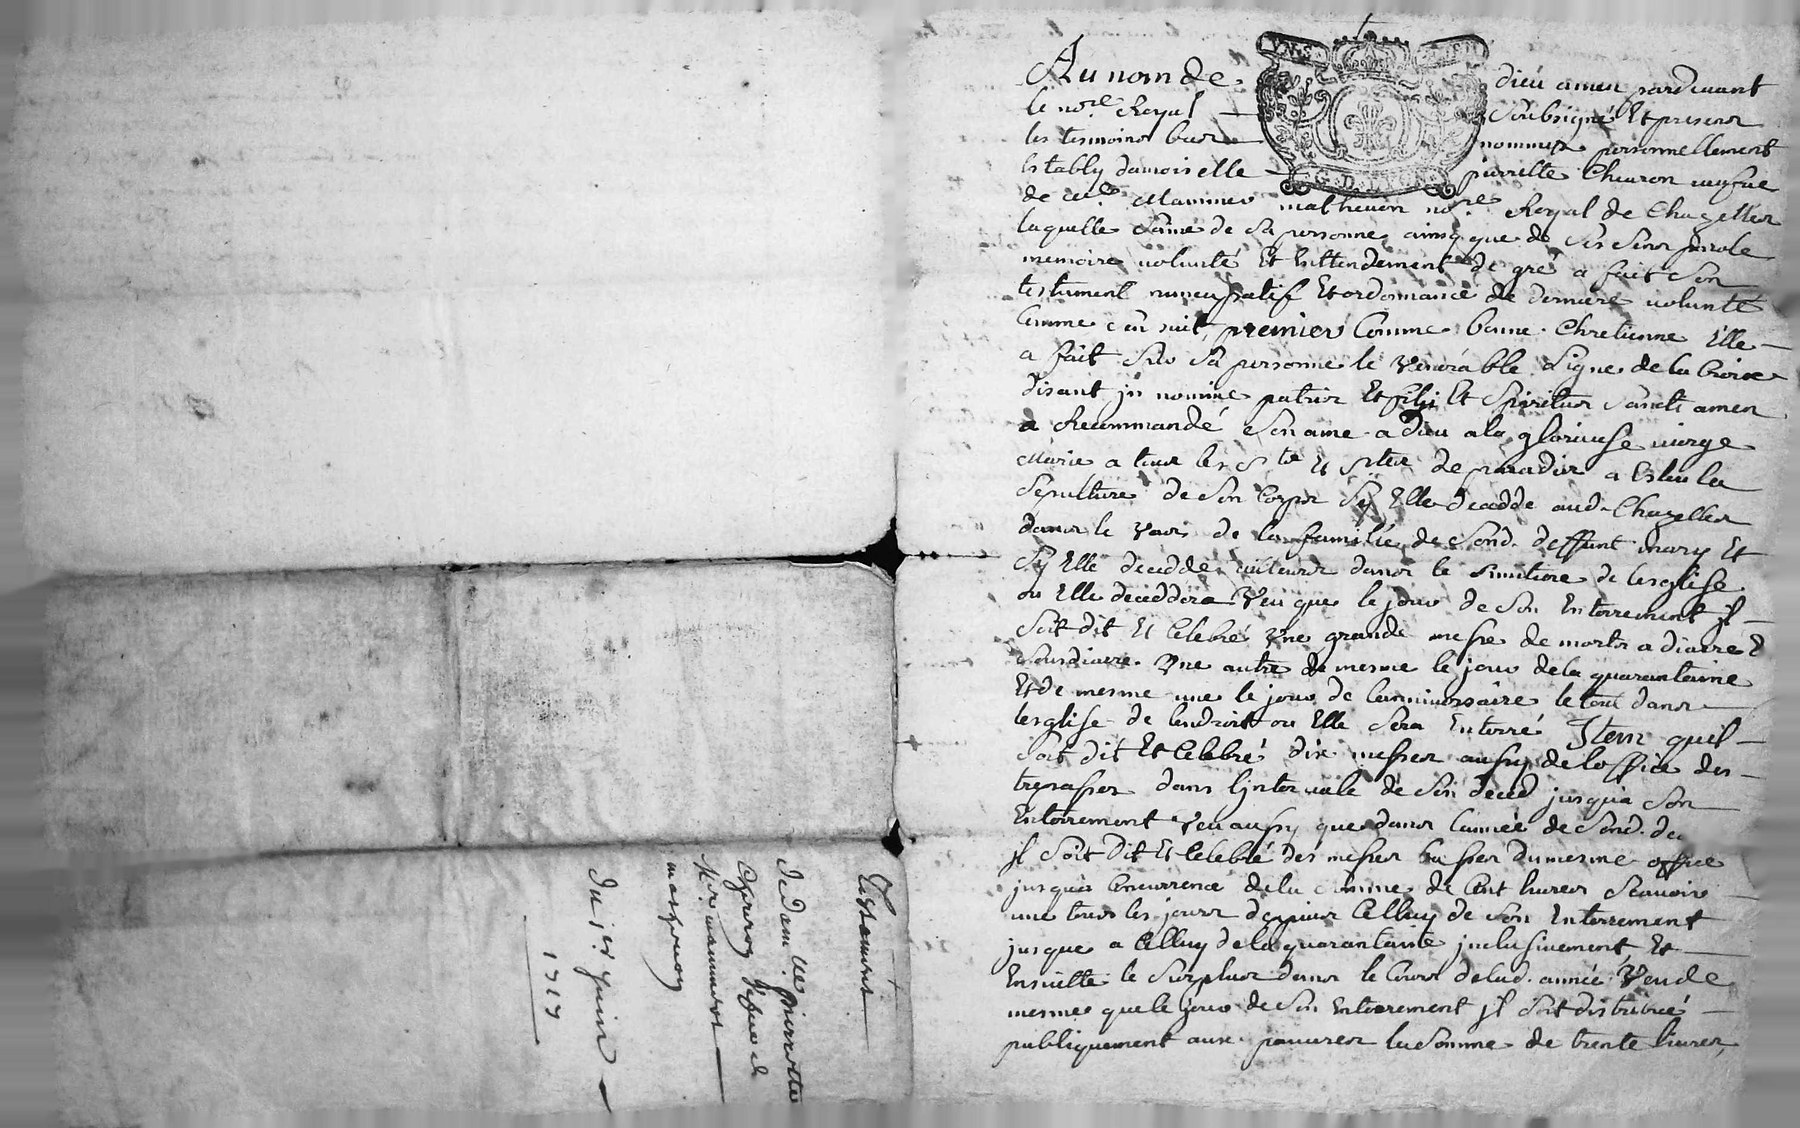 Testament
de dam.lle pierrette
Cheuron vefue de
Mre mammes
matheuon
du jer juin
1717
Au nom de dieu amen pardeuant
le no.re Royal soubsigné Et presens
les tesmoins bas nommez personnellement
Estably damoiselle pierrette Cheuron vefue
de Me Mammes matheuon no.re Royal de Chazelles
laquelle saine de sa personne ainsy que de ses sens parole
memoire volunté Et Entendement de gré a fait son
testament nuncupatif Et ordonnance de derniere volunté
Comme s'en suit, premier Comme bonne Chretienne Elle
a fait sur sa personne le Venerable signe de la Croix
disant jn nomine patris Et filij Et Spiritus Sancti amen
a Recommandé son ame a dieu a la glorieuse vierge
Marie a tous les Sts Et Stes de paradis a Esleu la
sepulture de son Corps sy Elle decedde aud. Chazelles
dans le Vas de la famille de sond. deffunt mary Et
sy Elle decedde ailleurs dans le simitiere de lesglise
ou Elle deceddera Veu que le jour de son Enterrement jl
soit dit Et Celebré Vne grande messe de morts a diacre E
sousdiacre Vne autre de mesme le jour de la quarantaine
Et de mesme une le jour de lanniuersaire le tout dans
lesglise de lendroit ou Elle sera Enterré Jtem quil
soit dit Et Celebré dix messes aussy de loffice des
trepasses dans ljnteruale de son deced jusqua son
Enterrement Veu aussy que dans lannée de sond. de
jl soit dit Et Celebré des messes basses du mesme office
jusqua Concurrence de la somme de Cent liures scauoir
une tous les jours depuis Celluy de son Enterrement
jusque a Celluy de la quarantaine jnclusiuement, Et
Ensuitte le surplus dans le Cours de lad. année, Veu de
mesme que le jour de son Enterrement jl soit distribué
publiquement aux pauures la somme de trente liures,